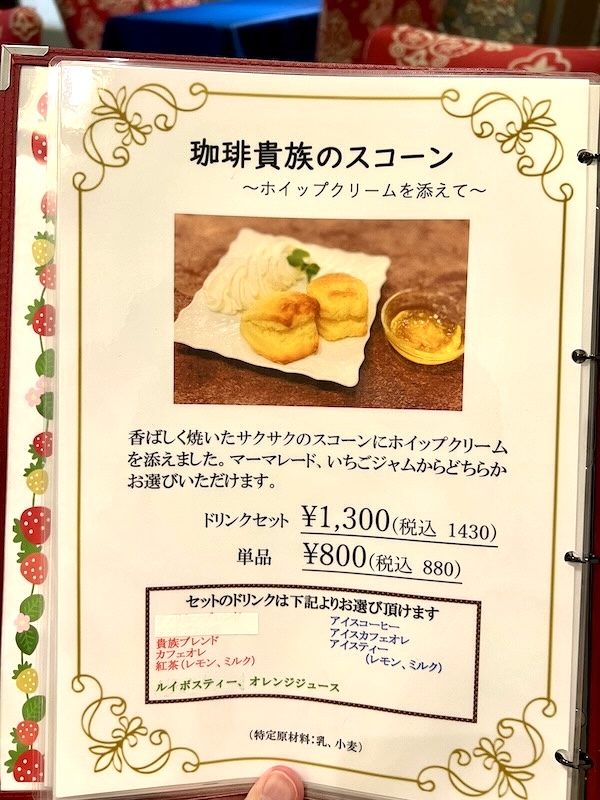 珈琲貴族のスコーン
～ホイップクリームを添えて～
香ばしく焼いたサクサクのスコーンにホイップクリーム
を添えました。マーマレード、いちごジャムからどちらか
お選びいただけます。
ドリンクセット ¥1,300(税込 1430)
単品 ¥800(税込 880)
セットのドリンクは下記よりお選び頂けます
貴族ブレンド
カフェオレ
紅茶(レモン、ミルク)
アイスコーヒー
アイスカフェオレ
アイスティー
(レモン、ミルク)
ルイボスティー、オレンジジュース
(特定原材料:乳、小麦)